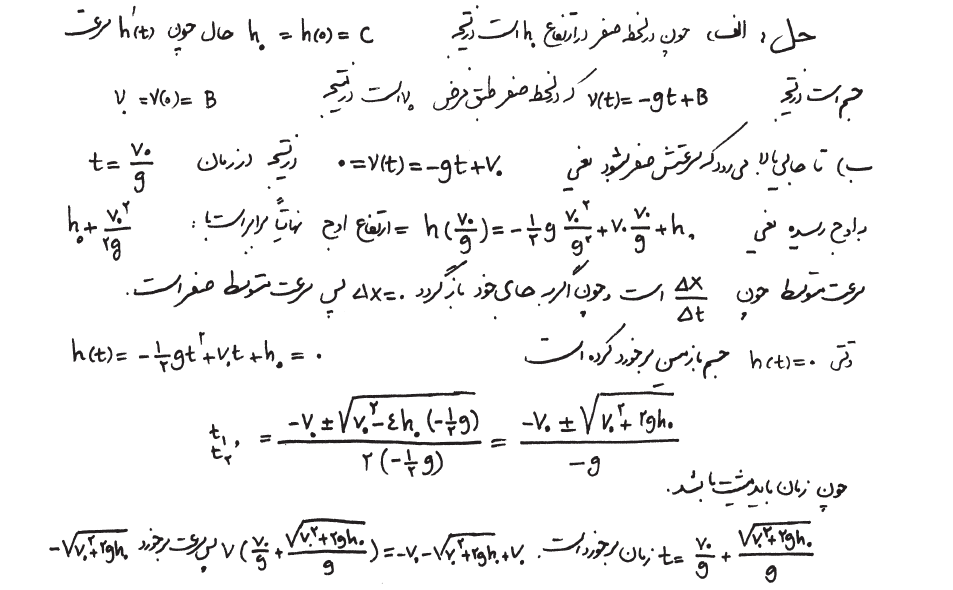 حل: الف) چون در لحظه صفر در ارتفاع h₀ است در نتیجه h₀ = h(0) = C حال چون h'(t) سرعت
جسم است در نتیجه v(t) = -gt + B که در لحظه صفر طبق فرض v₀ است در نتیجه v₀ = v(0) = B
ب) تا جایی بالا می‌رود که سرعتش صفر بشود یعنی ۰ = v(t) = -gt + v₀ در نتیجه در زمان t = v₀/g
به اوج رسیده یعنی h(v₀/g) = -½g v₀²/g² + v₀ v₀/g + h₀ = ارتفاع اوج نهایتاً برابر است با: h₀ + v₀²/۲g
سرعت متوسط چون Δx/Δt است و چون اگر به جای خود بازگردد Δx = ۰ پس سرعت متوسط صفر است.
وقتی h(t) = ۰ جسم با زمین برخورد کرده است h(t) = -½gt² + v₀t + h₀ = ۰
t₁, t₂ = (-v₀ ± √(v₀² - ٤h₀(-½g))) / ۲(-½g) = (-v₀ ± √(v₀² + ۲gh₀)) / -g
چون زمان باید مثبت باشد.
t = v₀/g + √(v₀² + ۲gh₀)/g زمان برخورد است. v(v₀/g + √(v₀² + ۲gh₀)/g) = -v₀ - √(v₀² + ۲gh₀) + v₀ پس سرعت برخورد -√(v₀² + ۲gh₀)